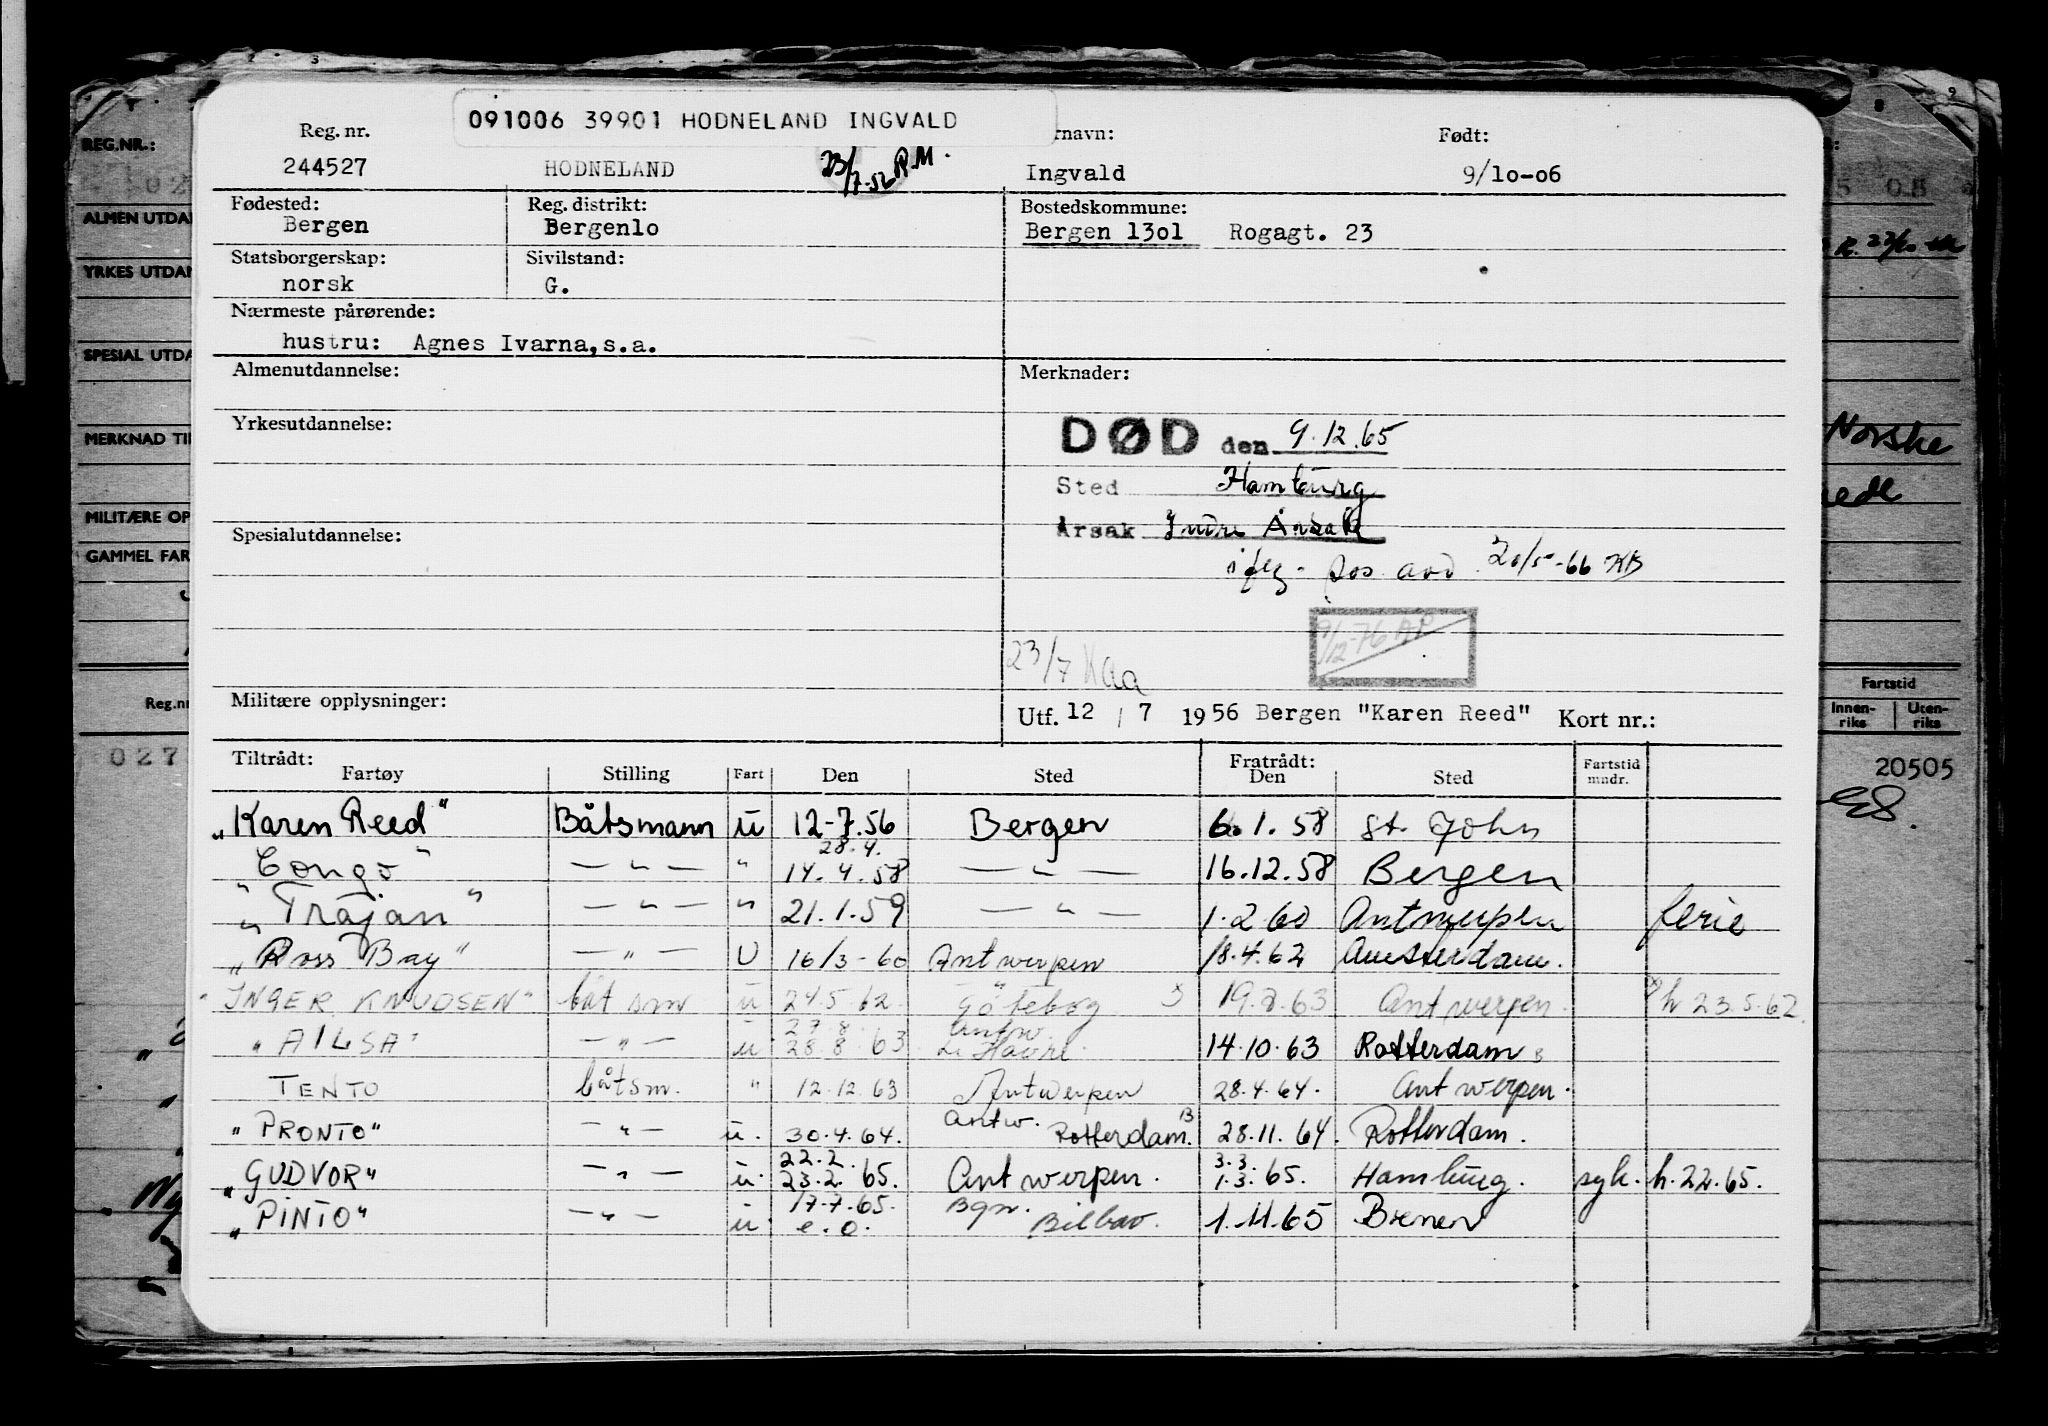 091006 39901 HODNELAND INGVALD
Reg. nr. rnavn: Født:
244527 HODNELAND 23/7-52 R.M. Ingvald 9/10-06
Fødested: Reg. distrikt: Bostedskommune:
Bergen Bergen10 Bergen 1301 Rogagt. 23
Statsborgerskap: Sivilstand:
norsk G.
Nærmeste pårørende:
hustru: Agnes Ivarna, s.a.
Almenutdannelse: Merknader:
Yrkesutdannelse:
DØD den 9.12.65
Sted Hamburg
Årsak Indre Årsak
Spesialutdannelse:
20/5-66 KB
9/12-76 AP
23/7 KAa
Militære opplysninger:
Utf. 12 / 7 1956 Bergen "Karen Reed" Kort nr.:
Tiltrådt: Fratrådt:
Fartøy Stilling Fart Den Sted Den Sted Fartstid mndr.
"Karen Reed" Båtsmann u 12-7.56 Bergen 6.1.58 St. John
28.4.
"Congo" — " — " 14.4.58 — " — 16.12.58 Bergen
"Trajan" — " — " 21.1.59 — " — 1.2.60 Antwerpen ferie
"Ross Bay" — " — U 16/3-60 Antwerpen 18.4.62 Amsterdam.
"INGER KNUDSEN" båtsm u 24.5.62. Göteborg 19.8.63 Antwerpen. h 23.5.62.
27.8. Antw.
"AILSA" — " — u 28.8.63 Le Havre. 14.10.63 Rotterdam
TENTO båtsm. " 12.12.63 Antwerpen 28.4.64. Antwerpen.
"PRONTO" — " — u. 30.4.64. Antw. Rotterdam. 28.11.64. Rotterdam.
22.2. 3.3.
"GUDVOR" — " — u. 23.2.65. Antwerpen. 1.3.65. Hamburg. syk. h. 22.65.
17.7.65. Bgn.
"PINTO" — " — u. e.o. Bilbao. 1.11.65 Bremen
REG.NR.:
ALMEN UTDA
YRKES UTDAN
SPESIAL UTDA
MERKNAD TI
MILITÆRE OP
GAMMEL FAR
Reg.nr
027
Norske
Fartstid
Innenriks Utenriks
20505